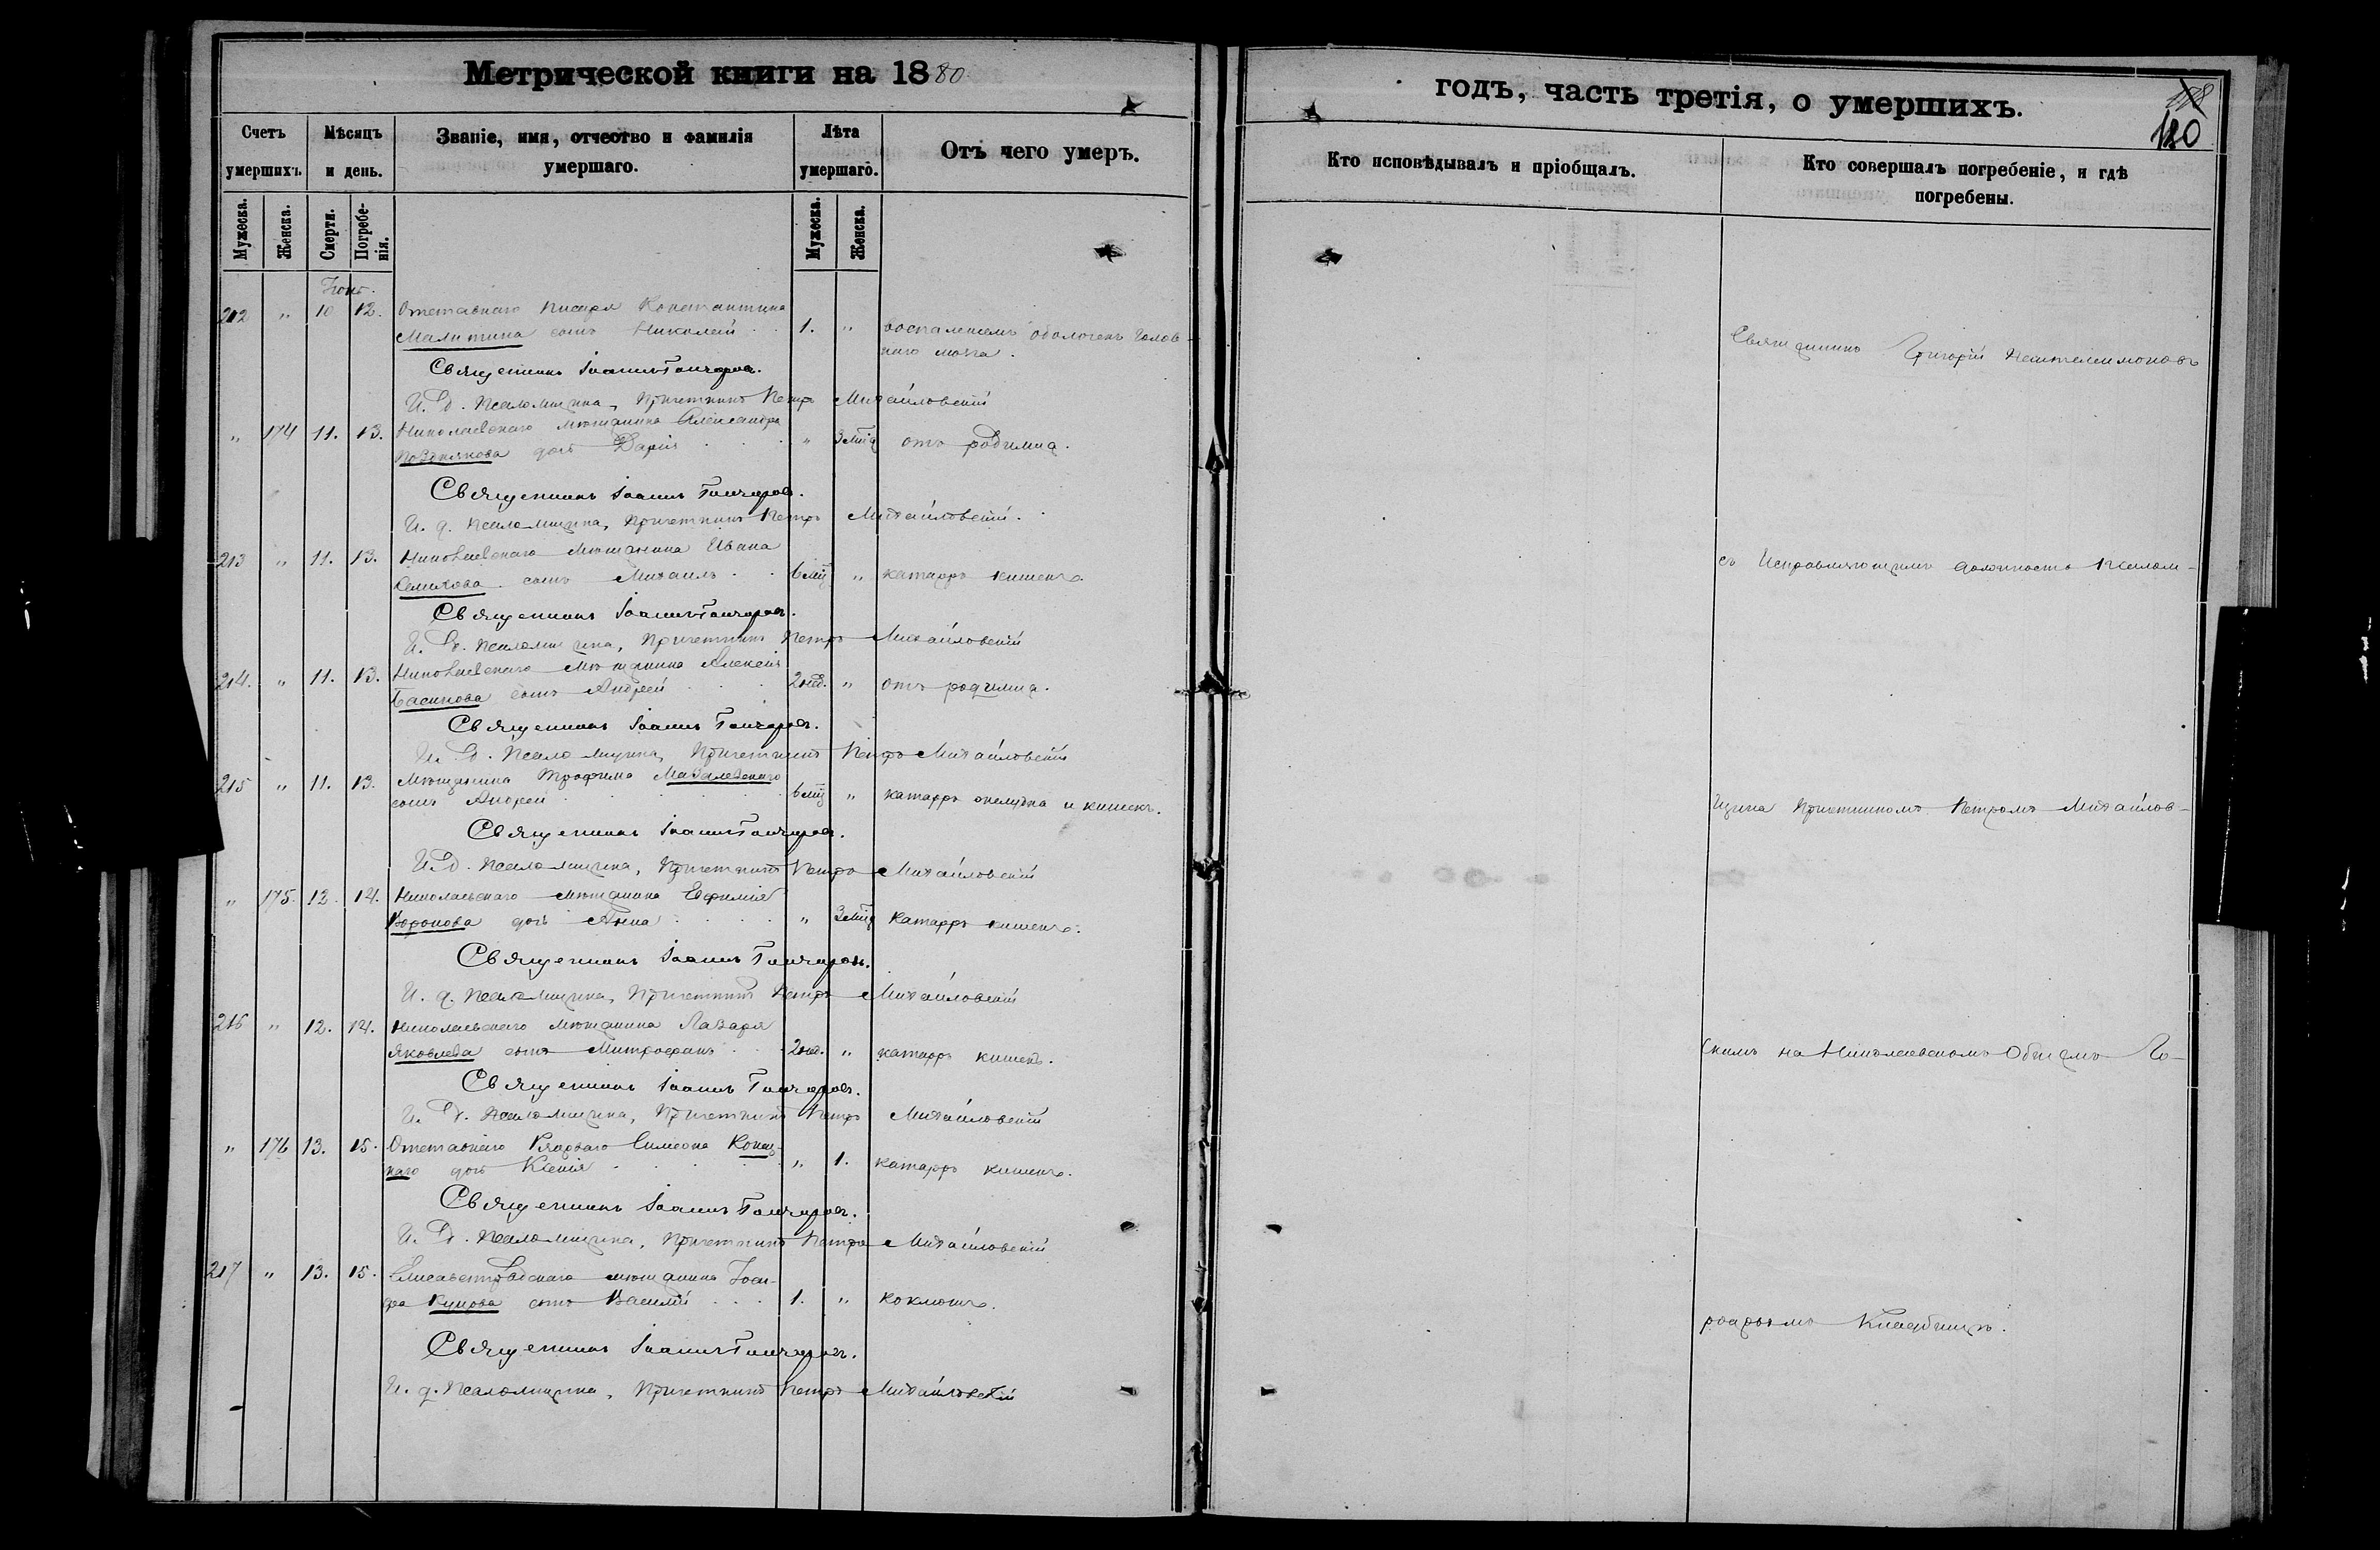 Метрической книги на 1880
годъ, часть третія, о умершихъ.
180
Счетъ умершихъ.
Мѣсяцъ и день.
Званіе, имя, отчество и фамилія умершаго.
Лѣта умершаго.
Отъ чего умеръ.
Кто исповѣдывалъ и пріобщалъ.
Кто совершалъ погребеніе, и гдѣ погребены.
Мужеска.
Женска.
Смерти.
Погребенія.
Мужеска.
Женска.
212 " 10 12. Отставнаго писаря Константина
Малитина сынъ Николай 1. " воспаленіемъ оболочекъ голов-
наго мозга.
Священникъ Іоаннъ Гончаровъ.
И. д. псаломщика, причетникъ Петръ Михайловскій
" 174 11. 13. Николаевскаго мѣщанина Александра
Позднякова дочь Дарія " 3 мѣс. отъ родимца.
Священникъ Іоаннъ Гончаровъ.
И. д. псаломщика, причетникъ Петръ Михайловскій.
213 " 11. 13. Николаевскаго мѣщанина Ивана
сынъ Михаилъ 6 мѣс. " катарръ кишекъ.
Священникъ Іоаннъ Гончаровъ.
И. д. псаломщика, причетникъ Петръ Михайловскій
214. " 11. 13. Николаевскаго мѣщанина Алексѣя
сынъ Андрей 2 нед. " отъ родимца.
Священникъ Іоаннъ Гончаровъ.
И. д. псаломщика, причетникъ Петръ Михайловскій
215 " 11. 13. Мѣщанина Трофима
сынъ Андрей 6 мѣс. " катарръ желудка и кишекъ.
Священникъ Іоаннъ Гончаровъ.
И. д. псаломщика, причетникъ Петръ Михайловскій
" 175. 12. 14. Николаевскаго мѣщанина Евфимія
Воронова дочь Анна " 3 мѣс. катарръ кишекъ.
Священникъ Іоаннъ Гончаровъ.
И. д. псаломщика, причетникъ Петръ Михайловскій
216 " 12. 14. Николаевскаго мѣщанина Лазаря
Яковлева сынъ Митрофанъ 2 нед. " катарръ кишекъ.
Священникъ Іоаннъ Гончаровъ.
И. д. псаломщика, причетникъ Петръ Михайловскій
" 176 13. 15. Отставнаго рядоваго Симеона
наго дочь Ксенія " 1. катарръ кишекъ.
Священникъ Іоаннъ Гончаровъ.
И. д. псаломщика, причетникъ Петръ Михайловскій
217 " 13. 15. Елисаветградскаго мѣщанина Іоси-
фа Купцова сынъ Василій 1. " коклюшъ.
Священникъ Іоаннъ Гончаровъ.
И. д. псаломщика, причетникъ Петръ Михайловскій
Священникъ Григорій Пантелеимоновъ
съ исправляющимъ должность псалом-
щика причетникомъ Петромъ Михайлов-
скимъ на Николаевскомъ общемъ го-
родскомъ кладбищѣ.